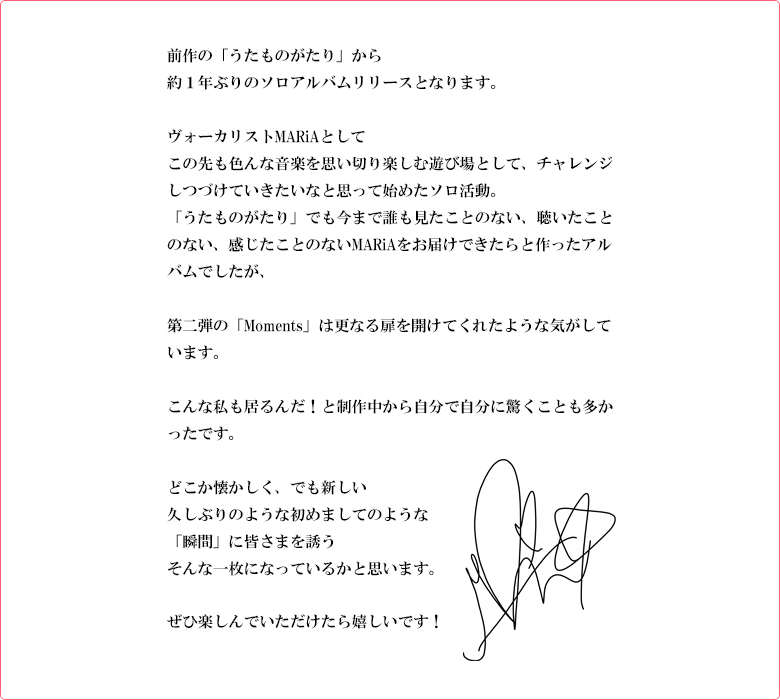 前作の「うたものがたり」から
約１年ぶりのソロアルバムリリースとなります。
ヴォーカリストMARiAとして
この先も色んな音楽を思い切り楽しむ遊び場として、チャレンジ
しつづけていきたいなと思って始めたソロ活動。
「うたものがたり」でも今まで誰も見たことのない、聴いたこと
のない、感じたことのないMARiAをお届けできたらと作ったアル
バムでしたが、
第二弾の「Moments」は更なる扉を開けてくれたような気がして
います。
こんな私も居るんだ！と制作中から自分で自分に驚くことも多か
ったです。
どこか懐かしく、でも新しい
久しぶりのような初めましてのような
「瞬間」に皆さまを誘う
そんな一枚になっているかと思います。
ぜひ楽しんでいただけたら嬉しいです！